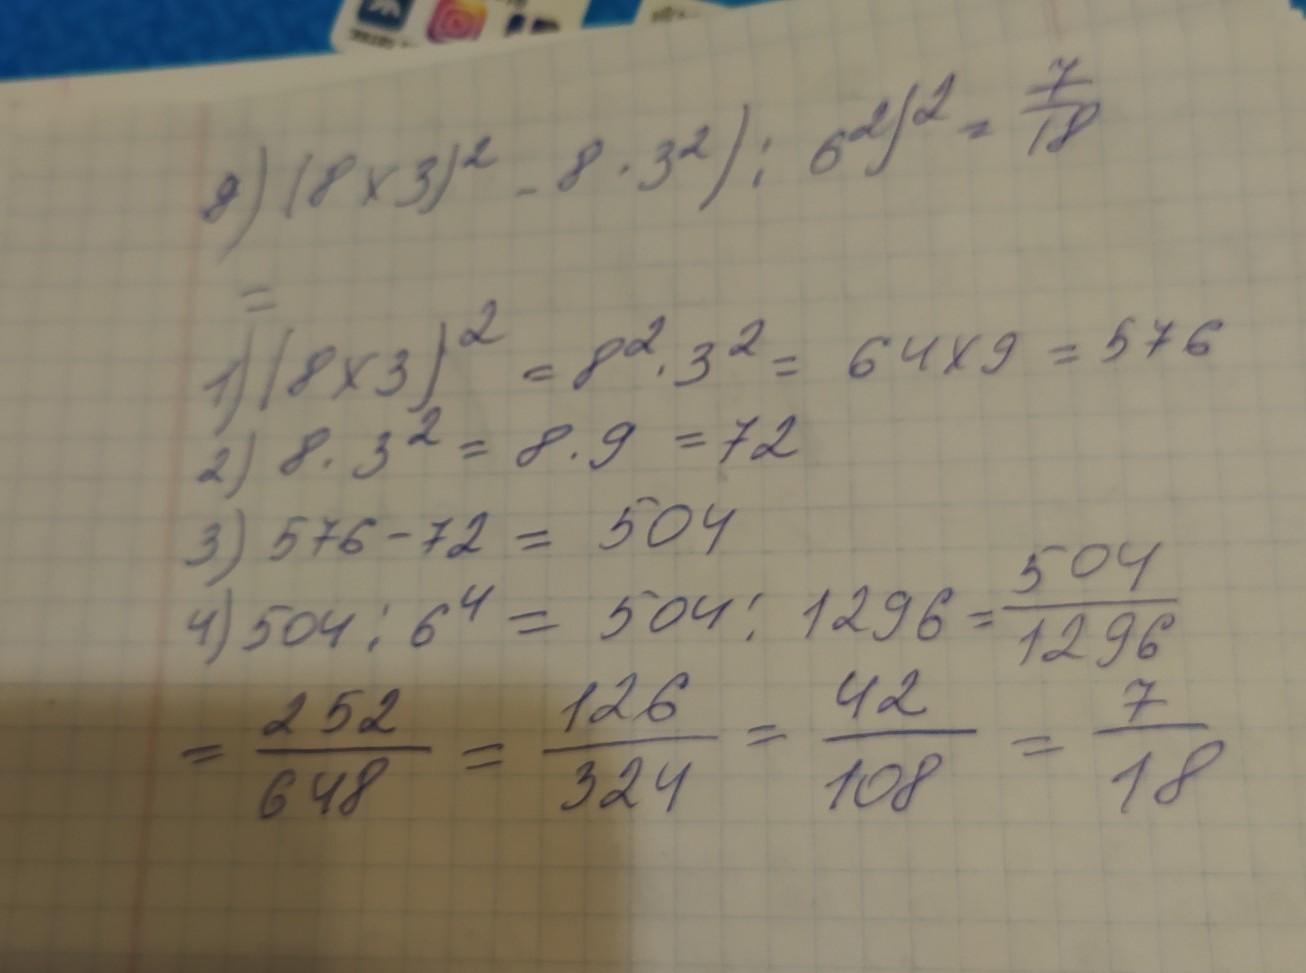 9) (8×3)² - 8·3²) : 6²)² = 7/18
=
1) (8×3)² = 8²·3² = 64×9 = 576
2) 8·3² = 8·9 = 72
3) 576-72 = 504
4) 504 : 6⁴ = 504 : 1296 = 504/1296
= 252/648 = 126/324 = 42/108 = 7/18